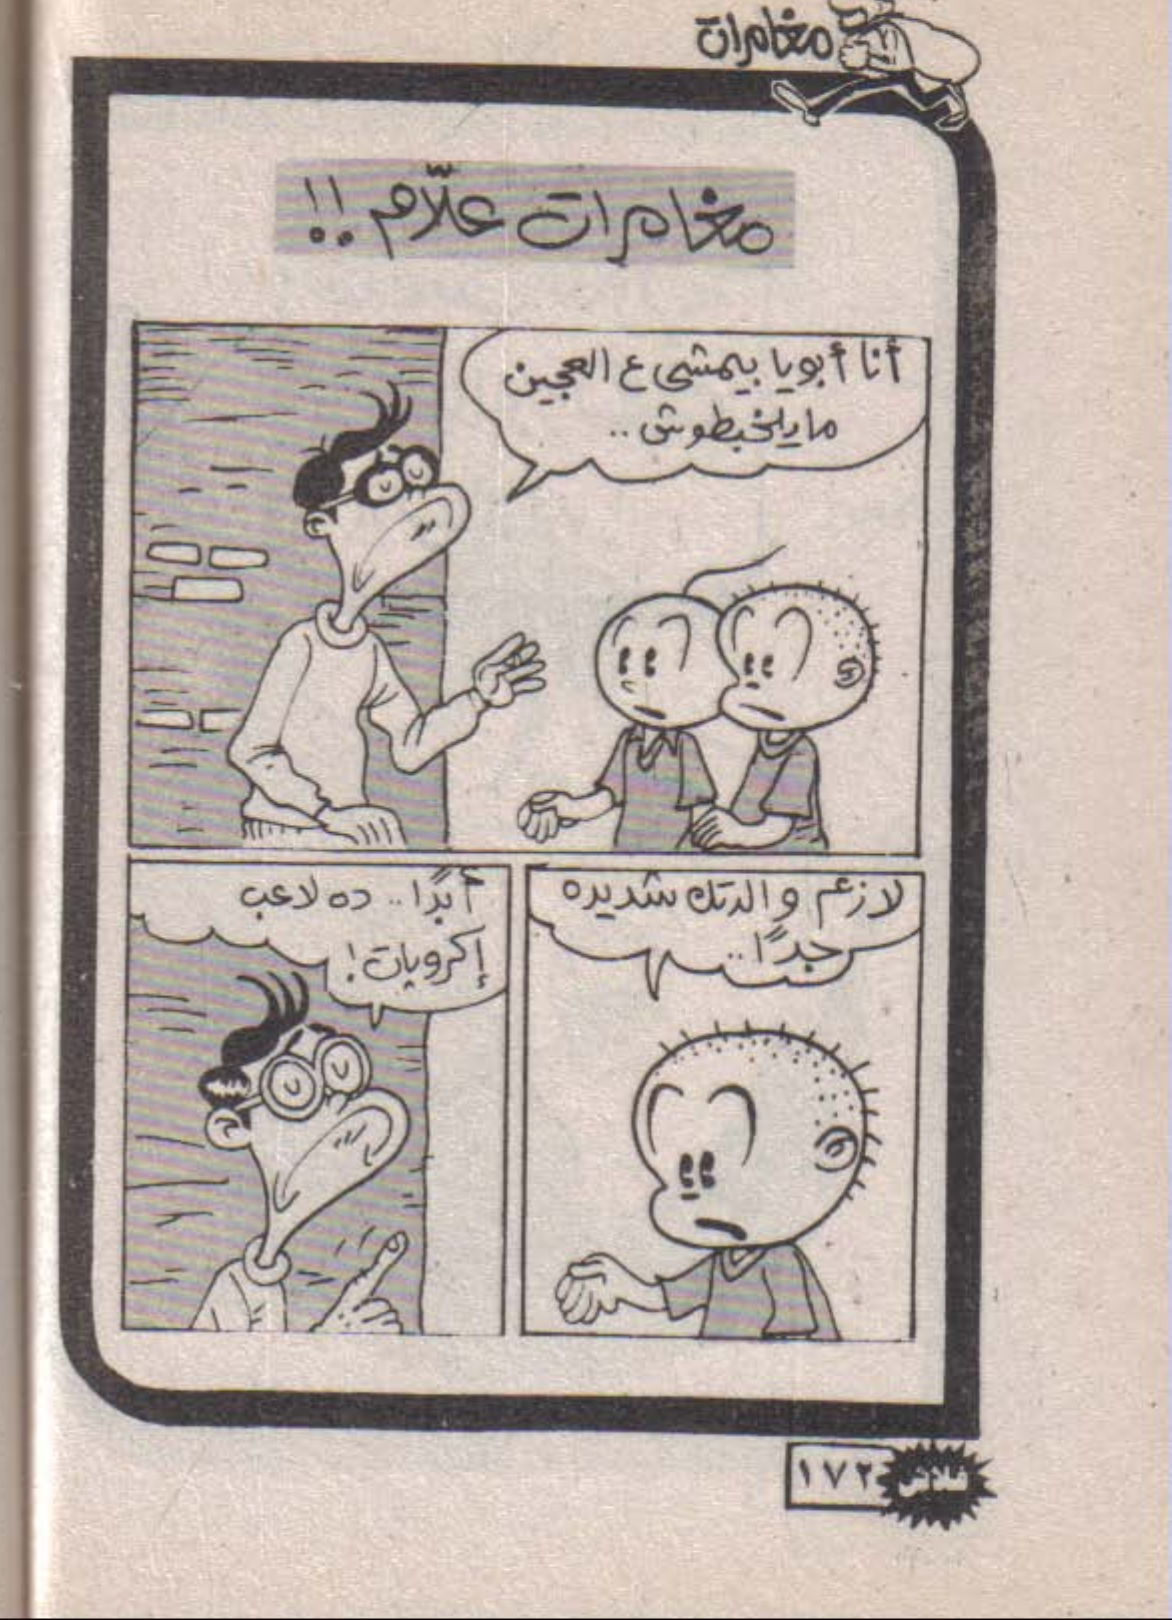 مغامرات
مغامرات علّام !!
أنا أبويا بيمشى ع العجين
ما يلخبطوش ..
لازم والدتك شديده
جدًا ..
أبدًا .. ده لاعب
إكروبات !
فلاش
١٧٢